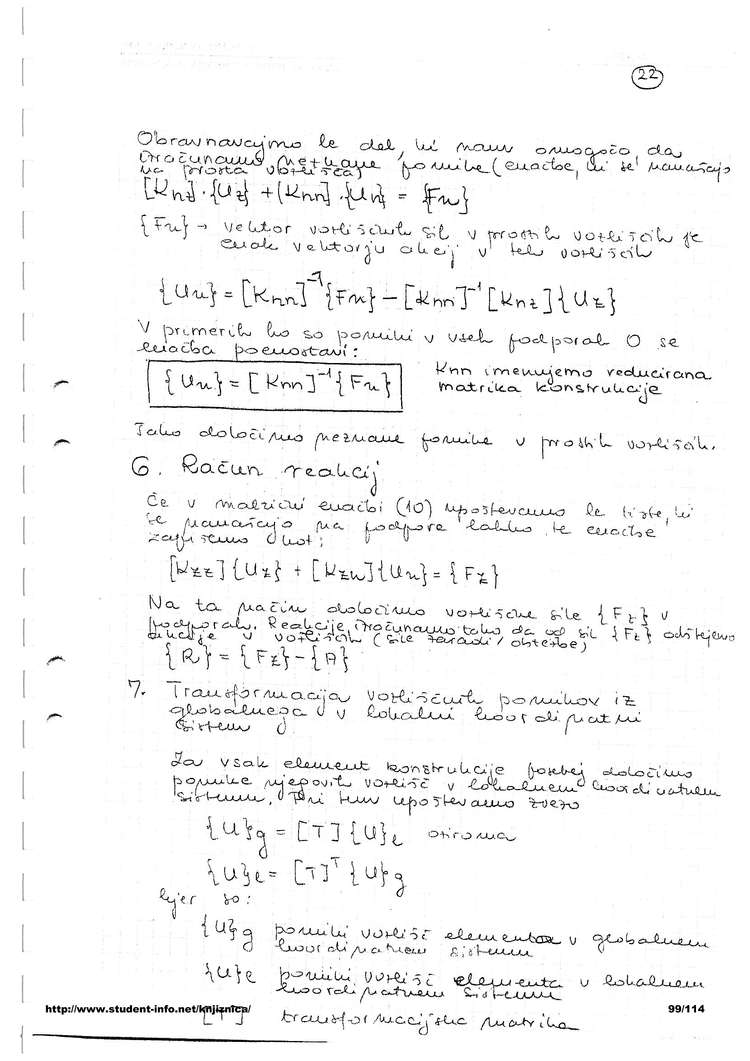 22
Obravnavajmo le del, ki nam omogoča da
izračunamo neznane pomike (enačbe, ki se nanašajo
na prosta vozlišča)
[Knz]·{Uz} + [Knn]·{Un} = {Fn}
{Fn} → vektor vozliščnih sil v prostih vozliščih je
enak vektorju akcij v teh vozliščih
{Un} = [Knn]⁻¹{Fn} − [Knn]⁻¹[Knz]{Uz}
V primerih ko so pomiki v vseh podporah 0 se
enačba poenostavi:
{Un} = [Knn]⁻¹{Fn}
Knn imenujemo reducirana
matrika konstrukcije
Tako določimo neznane pomike v prostih vozliščih.
6. Račun reakcij
Če v matrični enačbi (10) upoštevamo le tiste, ki
se nanašajo na podpore lahko te enačbe
zapišemo kot:
[Kzz]{Uz} + [Kzn]{Un} = {Fz}
Na ta način določimo vozliščne sile {Fz} v
podporah. Reakcije izračunamo tako da od sil {Fz} odštejemo
akcije v vozliščih (sile zaradi obtežbe)
{R} = {Fz} − {A}
7. Transformacija vozliščnih pomikov iz
globalnega v lokalni koordinatni
sistem
Za vsak element konstrukcije posebej določimo
pomike njegovih vozlišč v lokalnem koordinatnem
sistemu. Pri tem upoštevamo zvezo
{U}g = [T]{U}e oziroma
{U}e = [T]ᵀ{U}g
kjer so:
{U}g pomiki vozlišč elementa v globalnem
koordinatnem sistemu
{U}e pomiki vozlišč elementa v lokalnem
koordinatnem sistemu
http://www.student-info.net/knjiznica/ 99/114
[T] transformacijska matrika